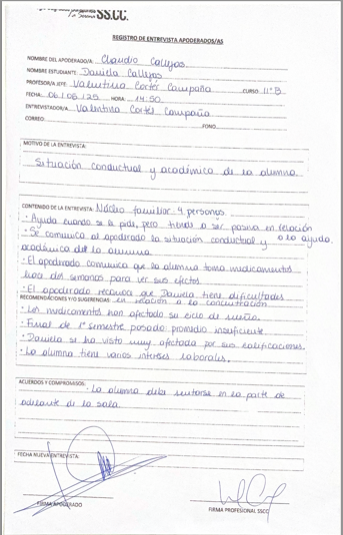 SS.CC.
REGISTRO DE ENTREVISTA APODERADOS/AS
NOMBRE DEL APODERADO/A: Claudio Callejas
NOMBRE ESTUDIANTE: Daniela Callejas
PROFESOR/JEFE: Valentina Cortés Campaña CURSO: IIºB
FECHA: 06/06/25 HORA: 14:50
ENTREVISTADOR/A: Valentina Cortés Campaña
CORREO: FONO:
MOTIVO DE LA ENTREVISTA:
Situación conductual y académica de la alumna.
CONTENIDO DE LA ENTREVISTA: Núcleo familiar 4 personas
• Ayuda cuando se le pide, pero tiende a ser pasiva en relación a la ayuda.
• Se comunica al apoderado la situación conductual y
académica de la alumna
• El apoderado comunica que la alumna toma medicamentos
hace dos semanas para ver sus efectos.
• El apoderado que Daniela tiene dificultades
RECOMENDACIONES Y/O SUGERENCIAS: en relación a la concentración
• Los medicamentos han afectado su ciclo de sueño.
• Final de 1º semestre pasado promedio insuficiente.
• Daniela se ha visto muy afectada por sus calificaciones.
• La alumna tiene varios intereses laborales.
ACUERDOS Y COMPROMISOS: • La alumna debe sentarse en la parte de
adelante de la sala.
FECHA NUEVA ENTREVISTA:
FIRMA APODERADO
FIRMA PROFESIONAL SSCC